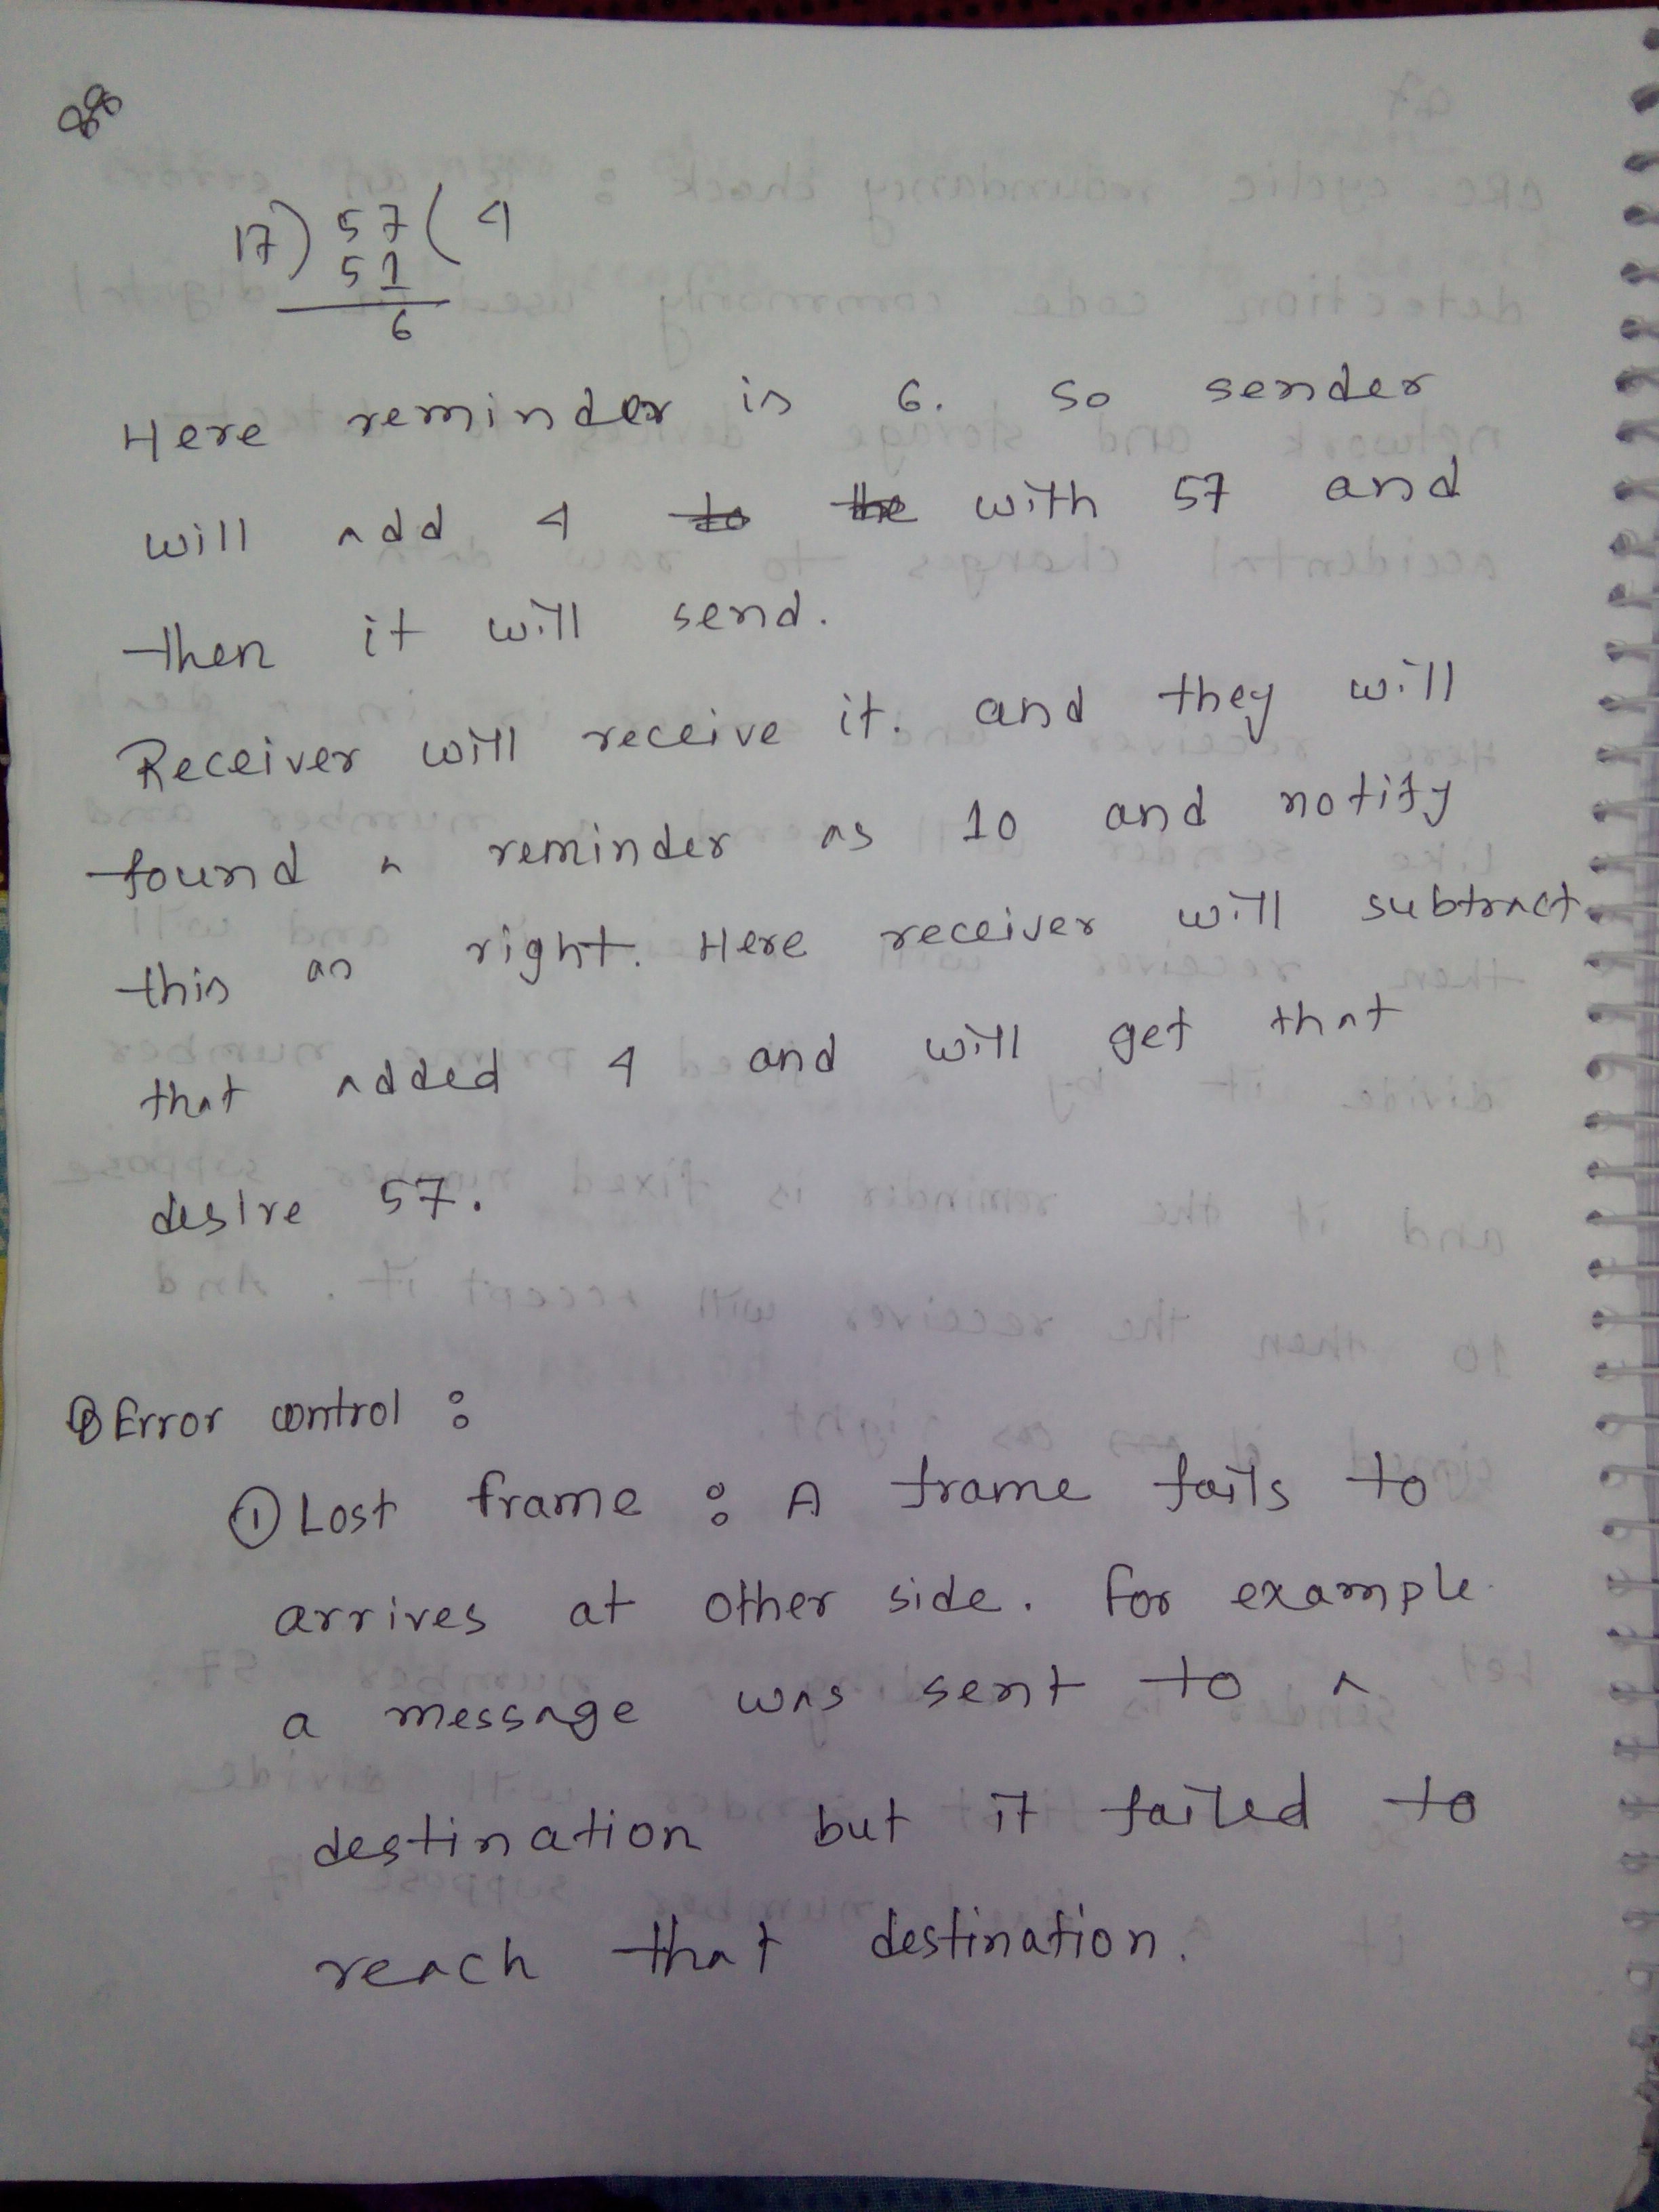 17) 57 ( 4
51
6
Here reminder is 6. so sender
will add 4 to the with 57 and
then it will send.
Receiver will receive it. and they will
found a reminder as 10 and notify
this as right. Here receiver will subtract
that added 4 and will get that
desire 57.
Error control :
① Lost frame : A frame fails to
arrives at other side. for example
a message was sent to a
destination but it failed to
reach that destination.